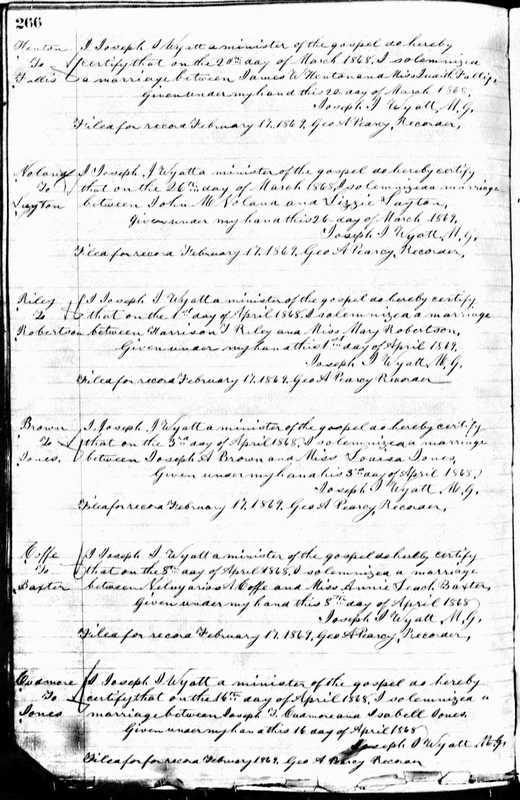 266
Henton I Joseph I Wyatt a minister of the gospel do hereby
To certify that on the 20th day of March 1868, I solemnized
Fallis a marriage between James W Henton and Miss
Given under my hand this 20 day of March 1868,
Joseph I Wyatt M. G.
Filed for record February 17, 1869, Geo A Pearcy Recorder,
Noland I Joseph I Wyatt a minister of the gospel do hereby certify
To that on the 26th day of March 1868, I solemnized a marriage
Layton between John M Noland and Lizzie Layton,
Given under my hand this 26 day of March 1869,
Joseph I Wyatt, M. G.
Filed for record February 17, 1869, Geo A Pearcy Recorder,
Riley I Joseph I Wyatt a minister of the gospel do hereby certify
To that on the 1st day of April 1868 I solemnized a marriage
Robertson between Harrison T Riley and Miss Mary Robertson,
Given under my hand this 1st day of April 1869,
Joseph I Wyatt M. G.
Filed for record February 17, 1869, Geo A Pearcy Recorder
Brown I, Joseph I Wyatt a minister of the gospel do hereby certify
To that on the 5th day of April 1868, I solemnized a marriage
Jones, between Joseph A Brown and Miss Louisa Jones,
Given under my hand this 5th day of April 1868,
Joseph I Wyatt M. G.
Filed for record February 17, 1869. Geo A Pearcy Recorder,
Coffe I Joseph I Wyatt a minister of the gospel do hereby certify
To that on the 8th day of April 1868, I solemnized a marriage
Baxter between A Coffe and Miss Annie Leach Baxter,
Given under my hand this 8th day of April 1868
Joseph I Wyatt M. G.
Filed for record February 17, 1869, Geo A Pearcy Recorder,
Cudmore I Joseph I Wyatt a minister of the gospel do hereby
To certify that on the 16th day of April 1868, I solemnized a
Jones marriage between Joseph T. Cudmore and Isabell Jones,
Given under my hand this 16 day of April 1868
Joseph I Wyatt M. G.
Filed for for record February 1869. Geo A Pearcy Recorder